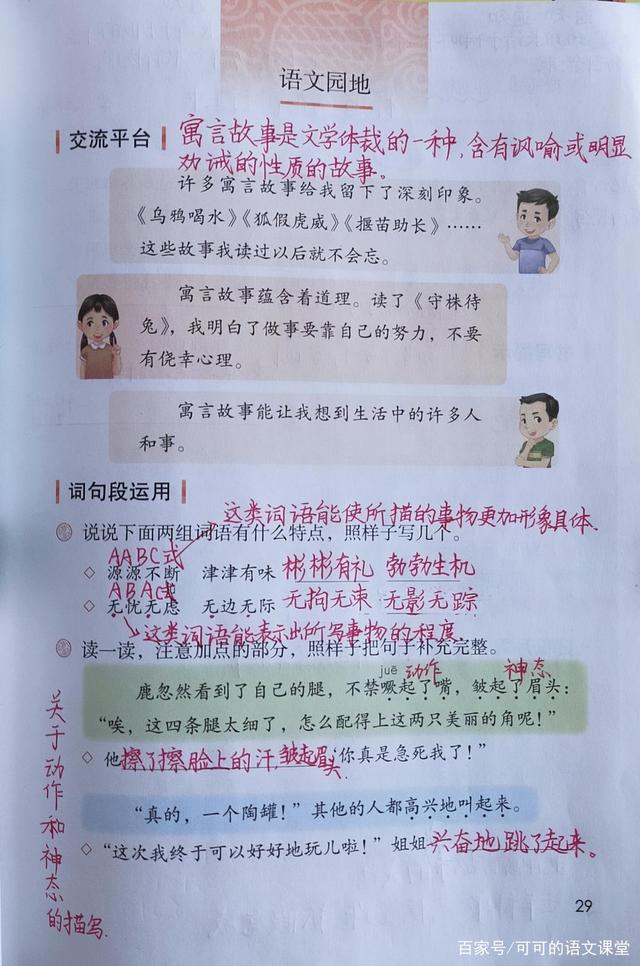 语文园地
交流平台
寓言故事是文学体裁的一种,含有讽喻或明显
劝诫的性质的故事。
许多寓言故事给我留下了深刻印象。
《乌鸦喝水》《狐假虎威》《揠苗助长》……
这些故事我读过以后就不会忘。
寓言故事蕴含着道理。读了《守株待
兔》,我明白了做事要靠自己的努力,不要
有侥幸心理。
寓言故事能让我想到生活中的许多人
和事。
词句段运用
这类词语能使所描的事物更加形象具体.
说说下面两组词语有什么特点,照样子写几个。
AABC式
◇ 源源不断 津津有味 彬彬有礼 勃勃生机
ABAC式
◇ 无忧无虑 无边无际 无拘无束 无影无踪
这类词语能表示出所写事物的程度
读一读,注意加点的部分,照样子把句子补充完整。
juē 动作 神态
鹿忽然看到了自己的腿,不禁噘起了嘴,皱起了眉头:
“唉,这四条腿太细了,怎么配得上这两只美丽的角呢!”
◇ 他擦了擦脸上的汗,皱起眉头.“你真是急死我了!”
“真的,一个陶罐!”其他的人都高兴地叫起来。
◇ “这次我终于可以好好地玩儿啦!”姐姐兴奋地跳了起来。
关于动作和神态的描写.
29
百家号/可可的语文课堂